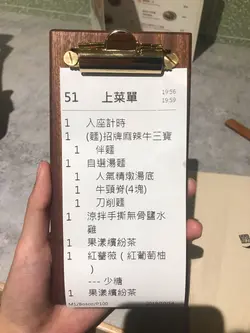 51 上菜單 19:56
19:59
1 入座計時
1 (麵)招牌麻辣牛三寶
1 伴麵
1 自選湯麵
1 人氣精燉湯底
1 牛頸脊(4塊)
1 刀削麵
1 涼拌手撕無骨鹽水
雞
1 果漾繽紛茶
1 紅薔薇(紅葡萄柚
)
--- 少糖
1 果漾繽紛茶